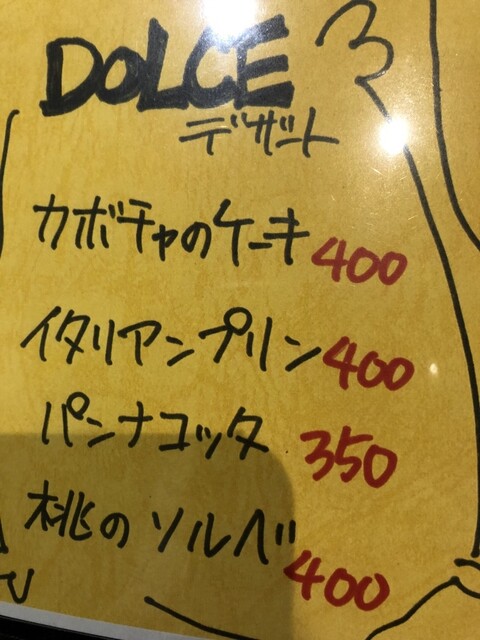 DOLCE
デザート
カボチャのケーキ 400
イタリアンプリン 400
パンナコッタ 350
桃のソルベ 400